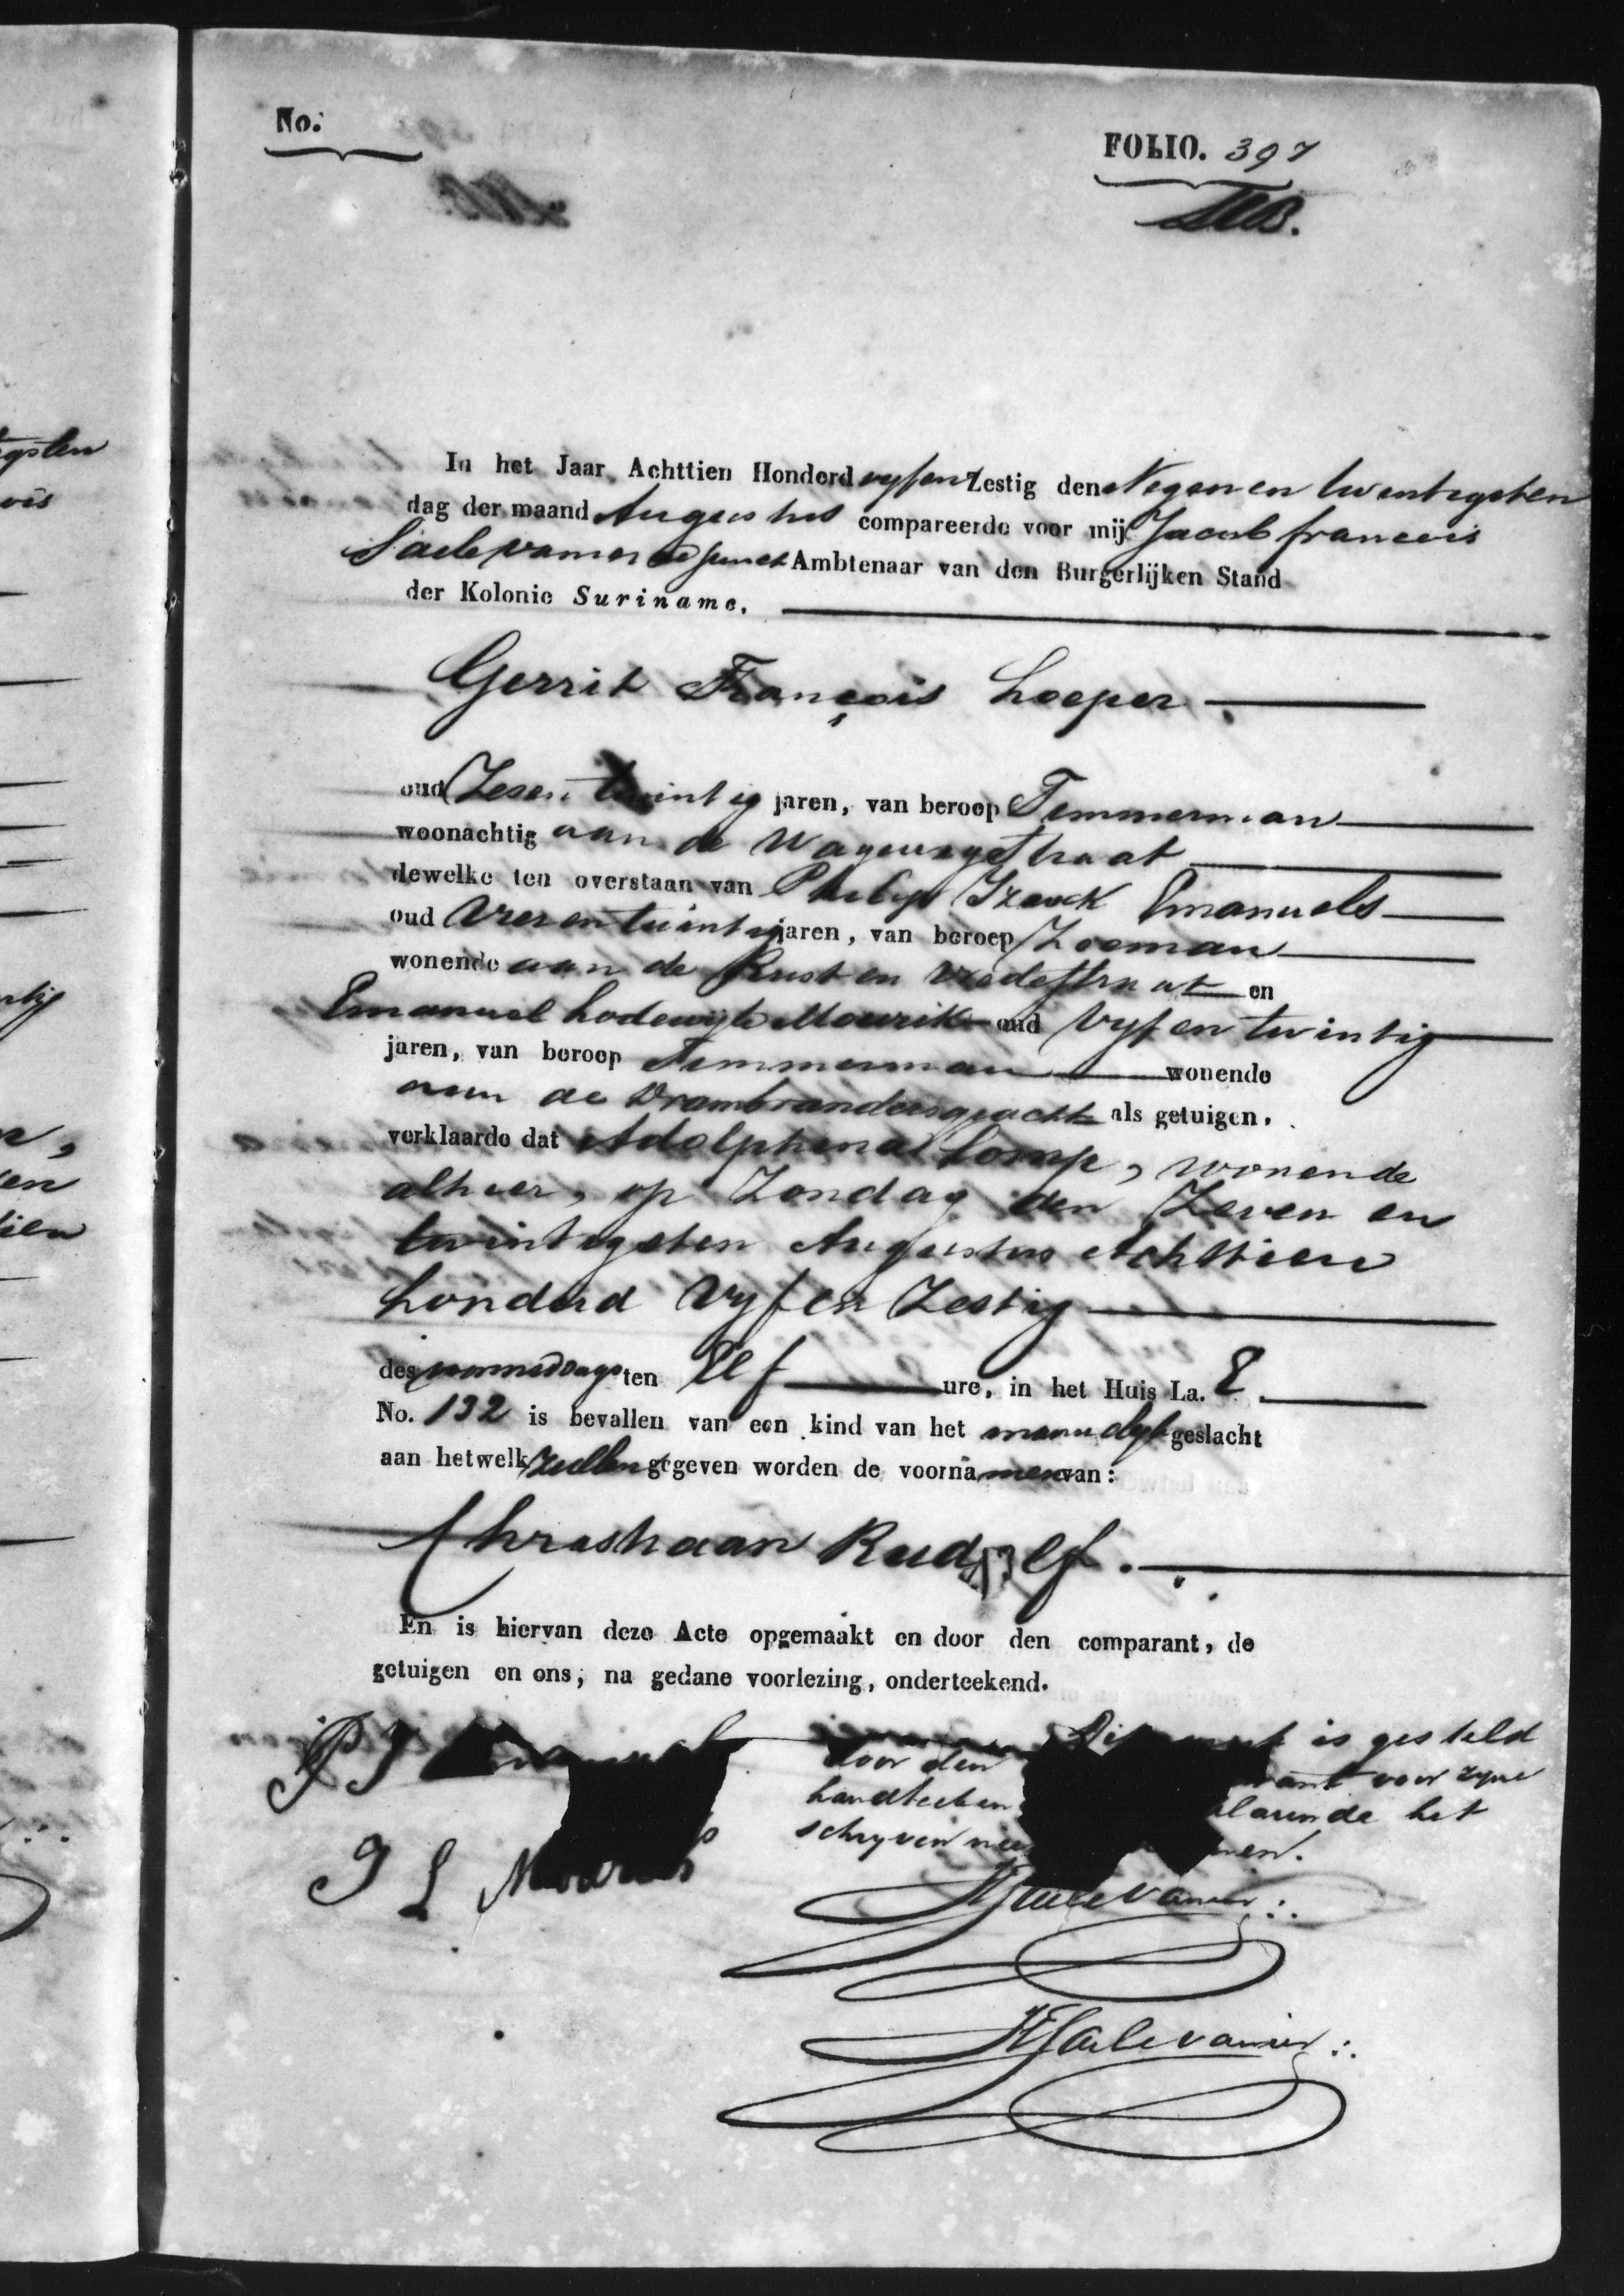 No.
FOLIO. 397
In het Jaar Achttien Honderd vyf en Zestig den Negen en twentigsten
dag der maand Augustus compareerde voor mij Jacob francois
Ambtenaar van den Burgerlijken Stand
der Kolonie Suriname.
Gerrit François Looper
oud Zes en twintig jaren, van beroep Timmerman
woonachtig aan de Wagenwegstraat
dewelke ten overstaan van Philip Izaack Emanuels
oud Vier en twintig jaren, van beroep Zeeman
wonende aan de Rust en Vredestraat en
Emanuel Lodewijk Mourik oud Vyf en twintig
jaren, van beroep Timmerman wonende
aan de Drambrandersgracht als getuigen.
verklaarde dat Adolphina Comp, wonende
alhier, op Zondag den Zeven en
twintigsten Augustus Achttien
honderd Vyf en Zestig
des voormiddags ten Elf ure, in het Huis La. E
No. 132 is bevallen van een kind van het mannelyk geslacht
aan hetwelk zullen gegeven worden de voornamen van:
Christiaan Rudolf.
En is hiervan deze Acte opgemaakt en door den comparant, de
getuigen en ons, na gedane voorlezing, onderteekend.
P I
is gesteld
door den voor zyne
het
schryven